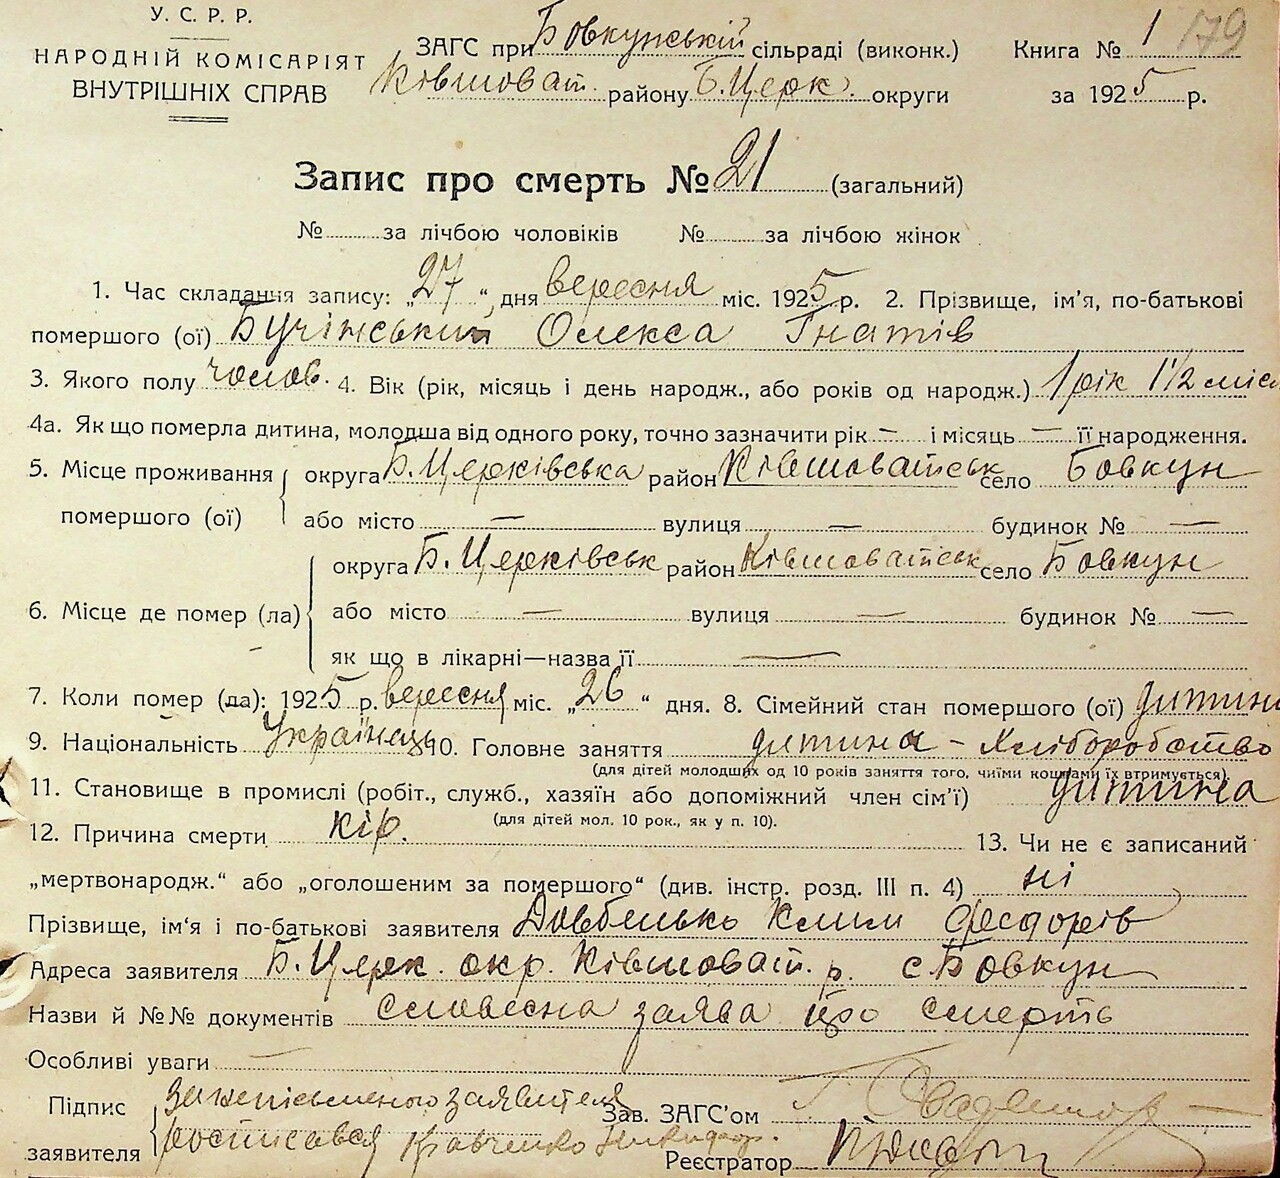 У. С. Р. Р.
НАРОДНІЙ КОМІСАРІЯТ
ВНУТРІШНІХ СПРАВ
ЗАГС при Бовкунській сільраді (виконк.)
Ківшоват. району Б.Церк. округи
Книга № 1 179
за 1925 р.
Запис про смерть № 21 (загальний)
№ за лічбою чоловіків № за лічбою жінок
1. Час складання запису: „27“, дня вересня міс. 1925 р. 2. Прізвище, ім'я, по-батькові
помершого (ої) Бучінський Олекса Гнатів
3. Якого полу чолов. 4. Вік (рік, місяць і день народж., або років од народж.) 1 рік 1 1/2 міся
4а. Як що померла дитина, молодша від одного року, точно зазначити рік — і місяць — її народження.
5. Місце проживання округа Б.Церківська район Ківшоватськ село Бовкун
помершого (ої) або місто — вулиця — будинок № —
округа Б. Церківськ район Ківшоватськ село Бовкун
6. Місце де помер (ла) або місто — вулиця — будинок № —
як що в лікарні—назва її —
7. Коли помер (ла): 1925 р. вересня міс. „26“ дня. 8. Сімейний стан помершого (ої) дитина
9. Національність Українець 10. Головне заняття дитина – Хліборобство
(для дітей молодших од 10 років заняття того, чиїми коштами їх втримується).
11. Становище в промислі (робіт., служб., хазяїн або допоміжний член сім'ї) дитина
(для дітей мол. 10 рок., як у п. 10).
12. Причина смерти кір. 13. Чи не є записаний
„мертвонародж.“ або „оголошеним за помершого“ (див. інстр. розд. III п. 4) ні
Прізвище, ім'я і по-батькові заявителя Довбенько Клим Федорів
Адреса заявителя Б.Церк. окр. Ківшоват. р. с. Бовкун
Назви й №№ документів словесна заява про смерть
Особливі уваги —
Підпис за неписьменого заявителя Зав. ЗАГС'ом
заявителя росписався Кравченко Никифор.
Реєстратор